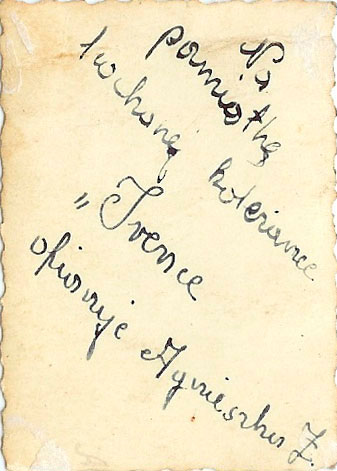 Na
pamiątkę
kochanej koleżance
„Irence
ofiaruje Agnieszka Z.